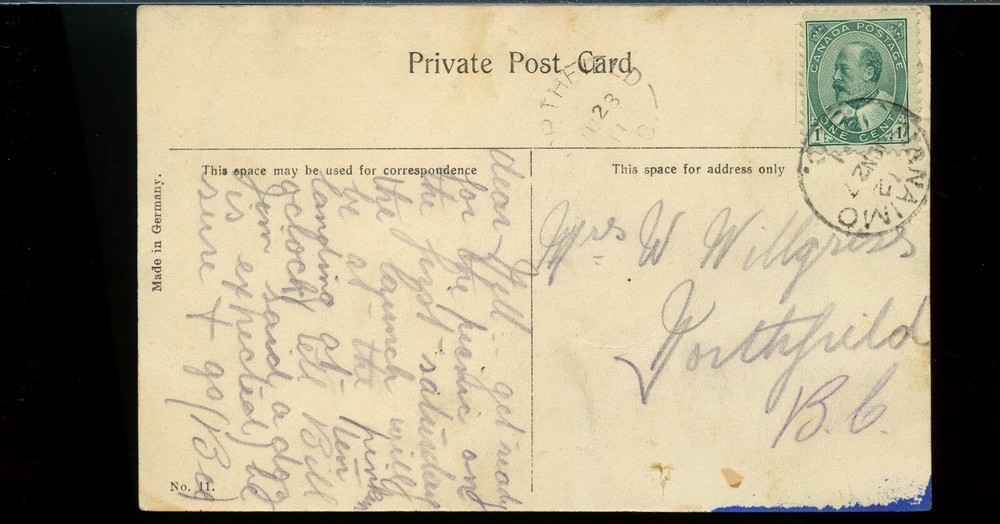 Private Post Card
CANADA POSTAGE
ONE CENT
1 1
RTHFIELD
23
11
NANAIMO
This space may be used for correspondence
This space for address only
Made in Germany.
dear Nell - get ready
for the picnic on
the first saturday
the launch will
be at the pinkey
landing at ten
oclock tell Bill
Jim said a dog
is expected be
sure & go
Mrs W Willgress
Northfield
B.C.
No. 11.